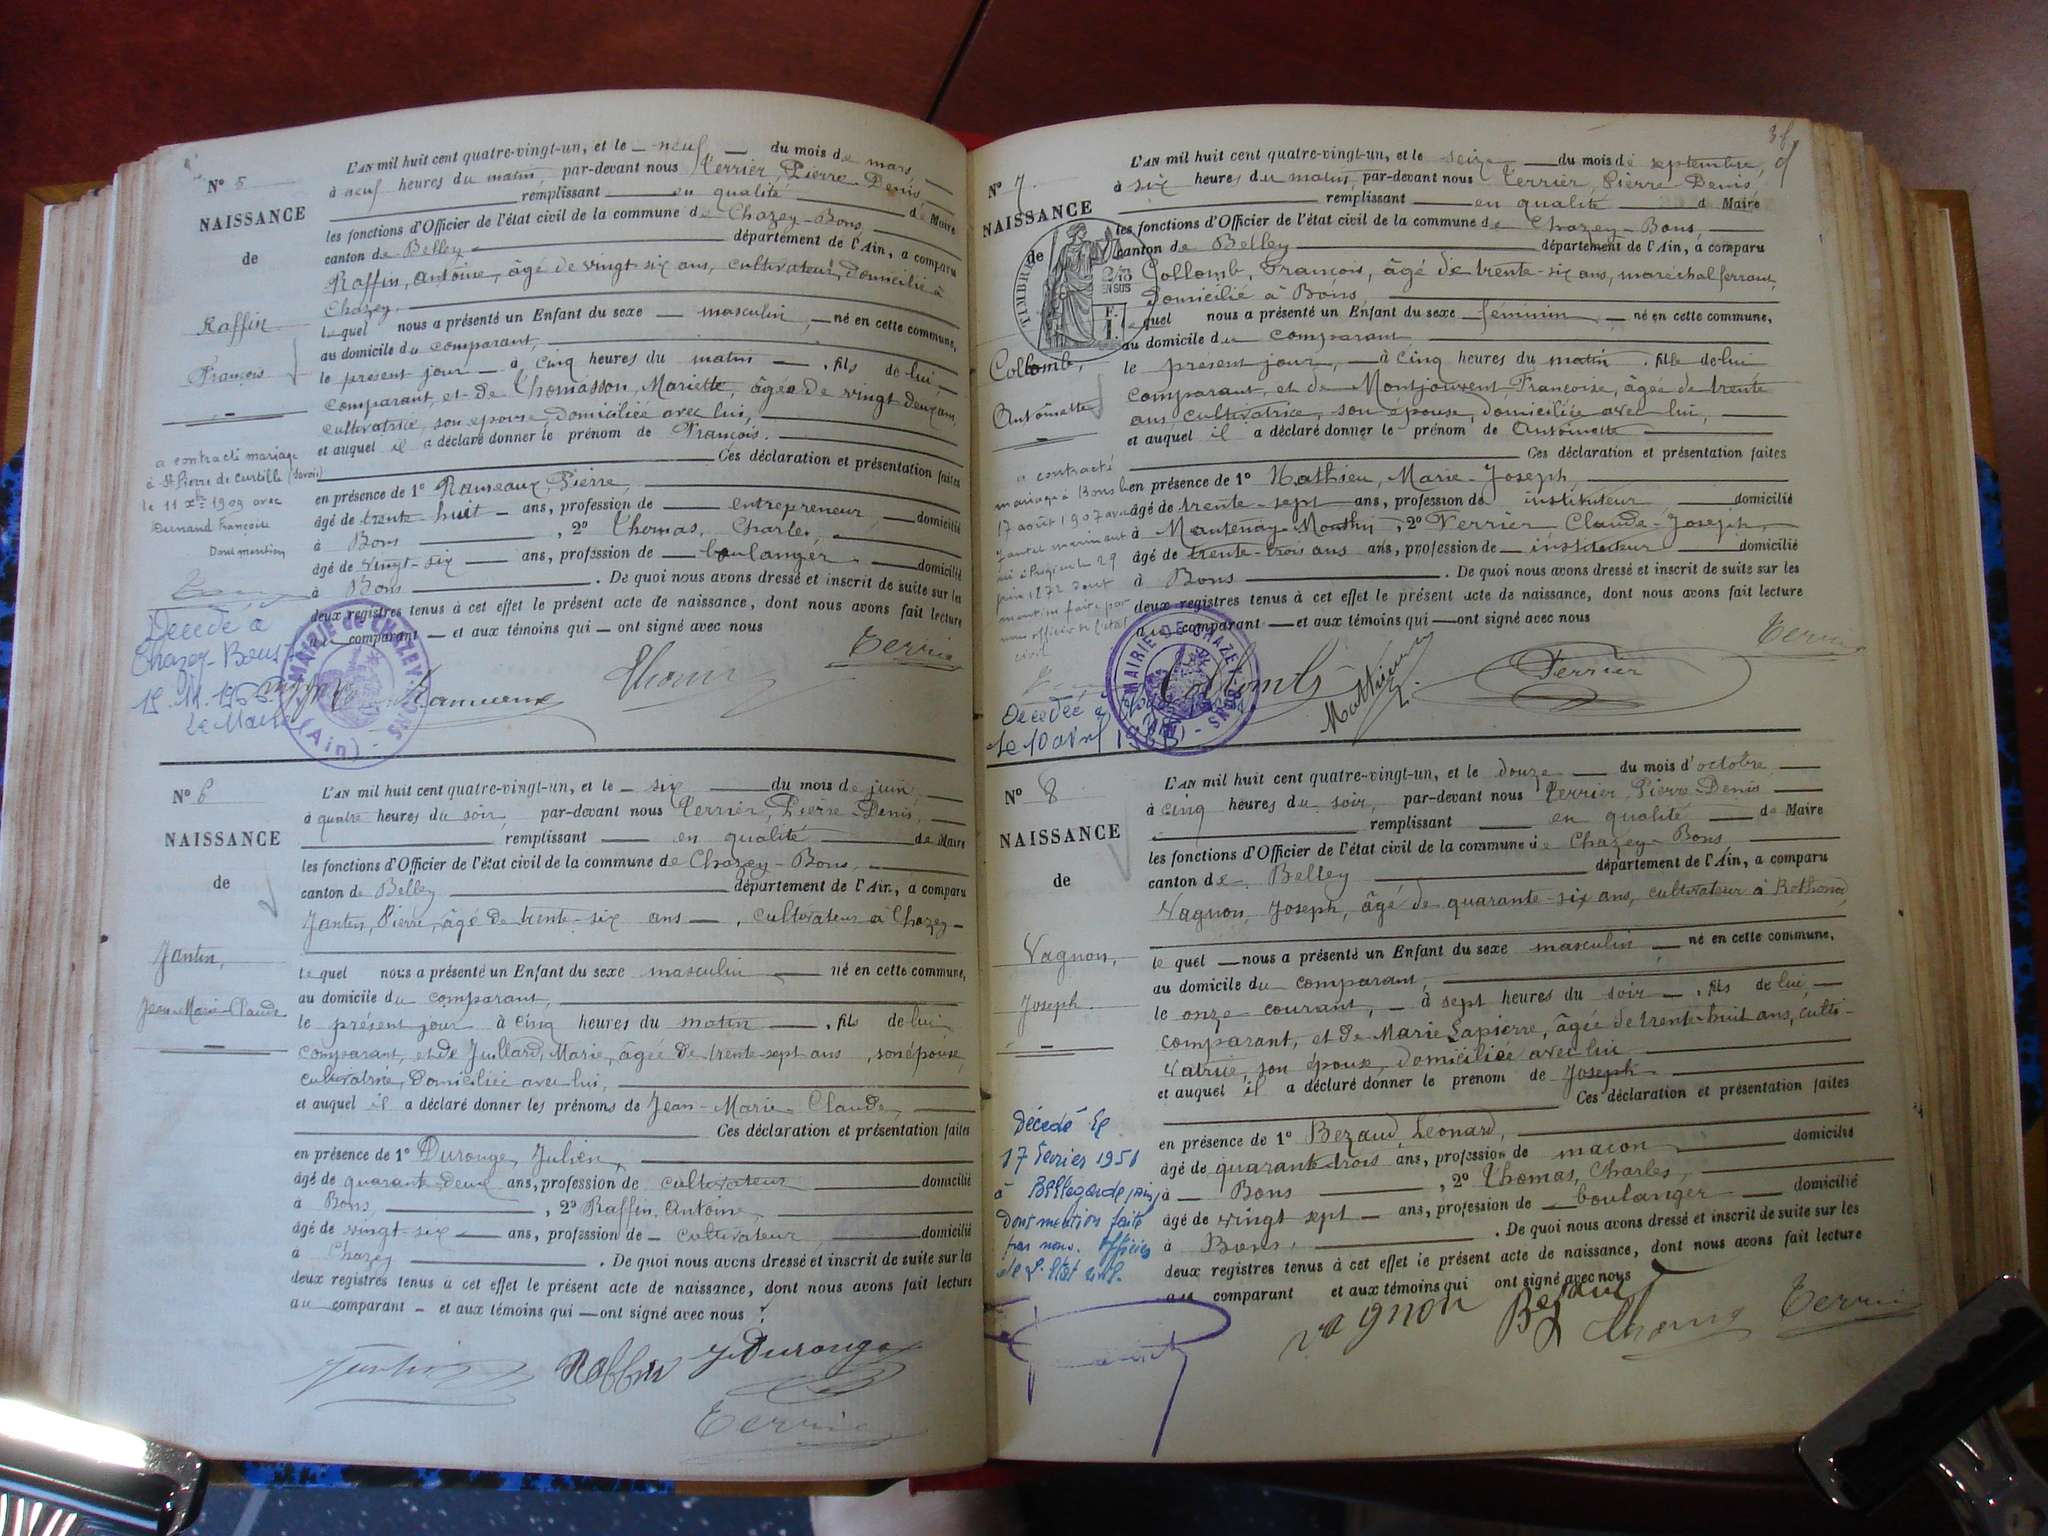 N° 5
NAISSANCE
de
Raffin
François
a contracté mariage
à St Pierre de Curtille (Savoie)
le 11 Xbre 1909 avec
Dunand Françoise
Dont mention
Décédé à
Chazey-Bons
le Maire
L'AN mil huit cent quatre-vingt-un, et le neuf du mois de mars,
à neuf heures du matin, par-devant nous Terrier, Pierre Denis,
remplissant en qualité de Maire
les fonctions d'Officier de l'état civil de la commune de Chazey-Bons,
canton de Belley département de l'Ain, a comparu
Raffin, Antoine, âgé de vingt six ans, cultivateur, domicilié à
Chazey,
lequel nous a présenté un Enfant du sexe masculin, né en cette commune,
au domicile du comparant,
le présent jour à cinq heures du matin, fils de lui
comparant, et de Thomasson, Mariette, âgée de vingt deux ans,
cultivatrice, son épouse, domiciliée avec lui,
et auquel il a déclaré donner le prénom de François.
Ces déclaration et présentation faites
en présence de 1° Rameaux, Pierre,
âgé de trente huit ans, profession de entrepreneur, domicilié
à Bons, 2° Thomas, Charles,
âgé de vingt-six ans, profession de boulanger domicilié
à Bons. De quoi nous avons dressé et inscrit de suite sur les
deux registres tenus à cet effet le présent acte de naissance, dont nous avons fait lecture
comparant et aux témoins qui ont signé avec nous
Terrier
Thomas
Rameaux
MAIRIE DE CHAZEY-BONS (Ain)
N° 6
NAISSANCE
de
Jantin,
Jean-Marie-Claude
L'AN mil huit cent quatre-vingt-un, et le six du mois de juin,
à quatre heures du soir, par-devant nous Terrier, Pierre Denis,
remplissant en qualité de Maire
les fonctions d'Officier de l'état civil de la commune de Chazey-Bons,
canton de Belley département de l'Ain, a comparu
Jantin, Pierre, âgé de trente-six ans, cultivateur à Chazey
lequel nous a présenté un Enfant du sexe masculin né en cette commune,
au domicile du comparant,
le présent jour à cinq heures du matin, fils de lui
comparant, et de Juillard, Marie, âgée de trente-sept ans, son épouse,
cultivatrice, domiciliée avec lui,
et auquel il a déclaré donner les prénoms de Jean-Marie-Claude,
Ces déclaration et présentation faites
en présence de 1° Durouge, Julien,
âgé de quarante-deux ans, profession de cultivateur domicilié
à Bons, 2° Raffin, Antoine,
âgé de vingt-six ans, profession de cultivateur, domicilié
à Chazey. De quoi nous avons dressé et inscrit de suite sur les
deux registres tenus à cet effet le présent acte de naissance, dont nous avons fait lecture
au comparant et aux témoins qui ont signé avec nous.
Jantin
Raffin
J Durouge
Terrier
N° 7
NAISSANCE
de
TIMBRE
Collomb,
Antoinette
a contracté
mariage à Bons le
17 août 1907 avec
né à Pugieu le 29
juin 1872 dont
mention faite par
nous officier de l'état
civil
Décédée à
le 10 avril
L'AN mil huit cent quatre-vingt-un, et le seize du mois de septembre,
à six heures du matin, par-devant nous Terrier, Pierre Denis,
remplissant en qualité de Maire
les fonctions d'Officier de l'état civil de la commune de Chazey-Bons,
canton de Belley département de l'Ain, a comparu
Collomb, François, âgé de trente-six ans, maréchal ferrant,
domicilié à Bons,
lequel nous a présenté un Enfant du sexe féminin, né en cette commune,
au domicile du comparant
le présent jour, à cinq heures du matin, fille de lui
comparant, et de Montjouvent, Françoise, âgée de trente
ans, cultivatrice, son épouse, domiciliée avec lui,
et auquel il a déclaré donner le prénom de Antoinette
Ces déclaration et présentation faites
en présence de 1° Mathieu, Marie-Joseph,
âgé de trente-sept ans, profession de instituteur domicilié
à Mantenay-Montlin, 2° Terrier Claude-Joseph,
âgé de trente-trois ans ans, profession de instituteur domicilié
à Bons. De quoi nous avons dressé et inscrit de suite sur les
deux registres tenus à cet effet le présent acte de naissance, dont nous avons fait lecture
au comparant et aux témoins qui ont signé avec nous
Terrier
Collomb
Mathieu
Terrier
MAIRIE DE CHAZEY-BONS
N° 8
NAISSANCE
de
Vagnon,
Joseph
Décédé le
17 février 1951
à Bellegarde
dont mention faite
par nous. Officier
de l'Etat civil.
L'AN mil huit cent quatre-vingt-un, et le douze du mois d'octobre,
à cinq heures du soir, par-devant nous Terrier, Pierre-Denis
remplissant en qualité de Maire
les fonctions d'Officier de l'état civil de la commune de Chazey-Bons
canton de Belley département de l'Ain, a comparu
Vagnon, Joseph, âgé de quarante-six ans, cultivateur à Rothonod,
lequel nous a présenté un Enfant du sexe masculin né en cette commune,
au domicile du comparant,
le onze courant, à sept heures du soir, fils de lui,
comparant, et de Marie Lapierre, âgée de trente-huit ans, culti-
vatrice, son épouse, domiciliée avec lui
et auquel il a déclaré donner le prénom de Joseph.
Ces déclaration et présentation faites
en présence de 1° Bezaud, Léonard,
âgé de quarante-trois ans, profession de maçon domicilié
à Bons, 2° Thomas, Charles,
âgé de vingt sept ans, profession de boulanger domicilié
à Bons. De quoi nous avons dressé et inscrit de suite sur les
deux registres tenus à cet effet le présent acte de naissance, dont nous avons fait lecture
au comparant et aux témoins qui ont signé avec nous
vagnon
Bezaud
Thomas
Terrier